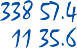 338 57.4
11 35.6